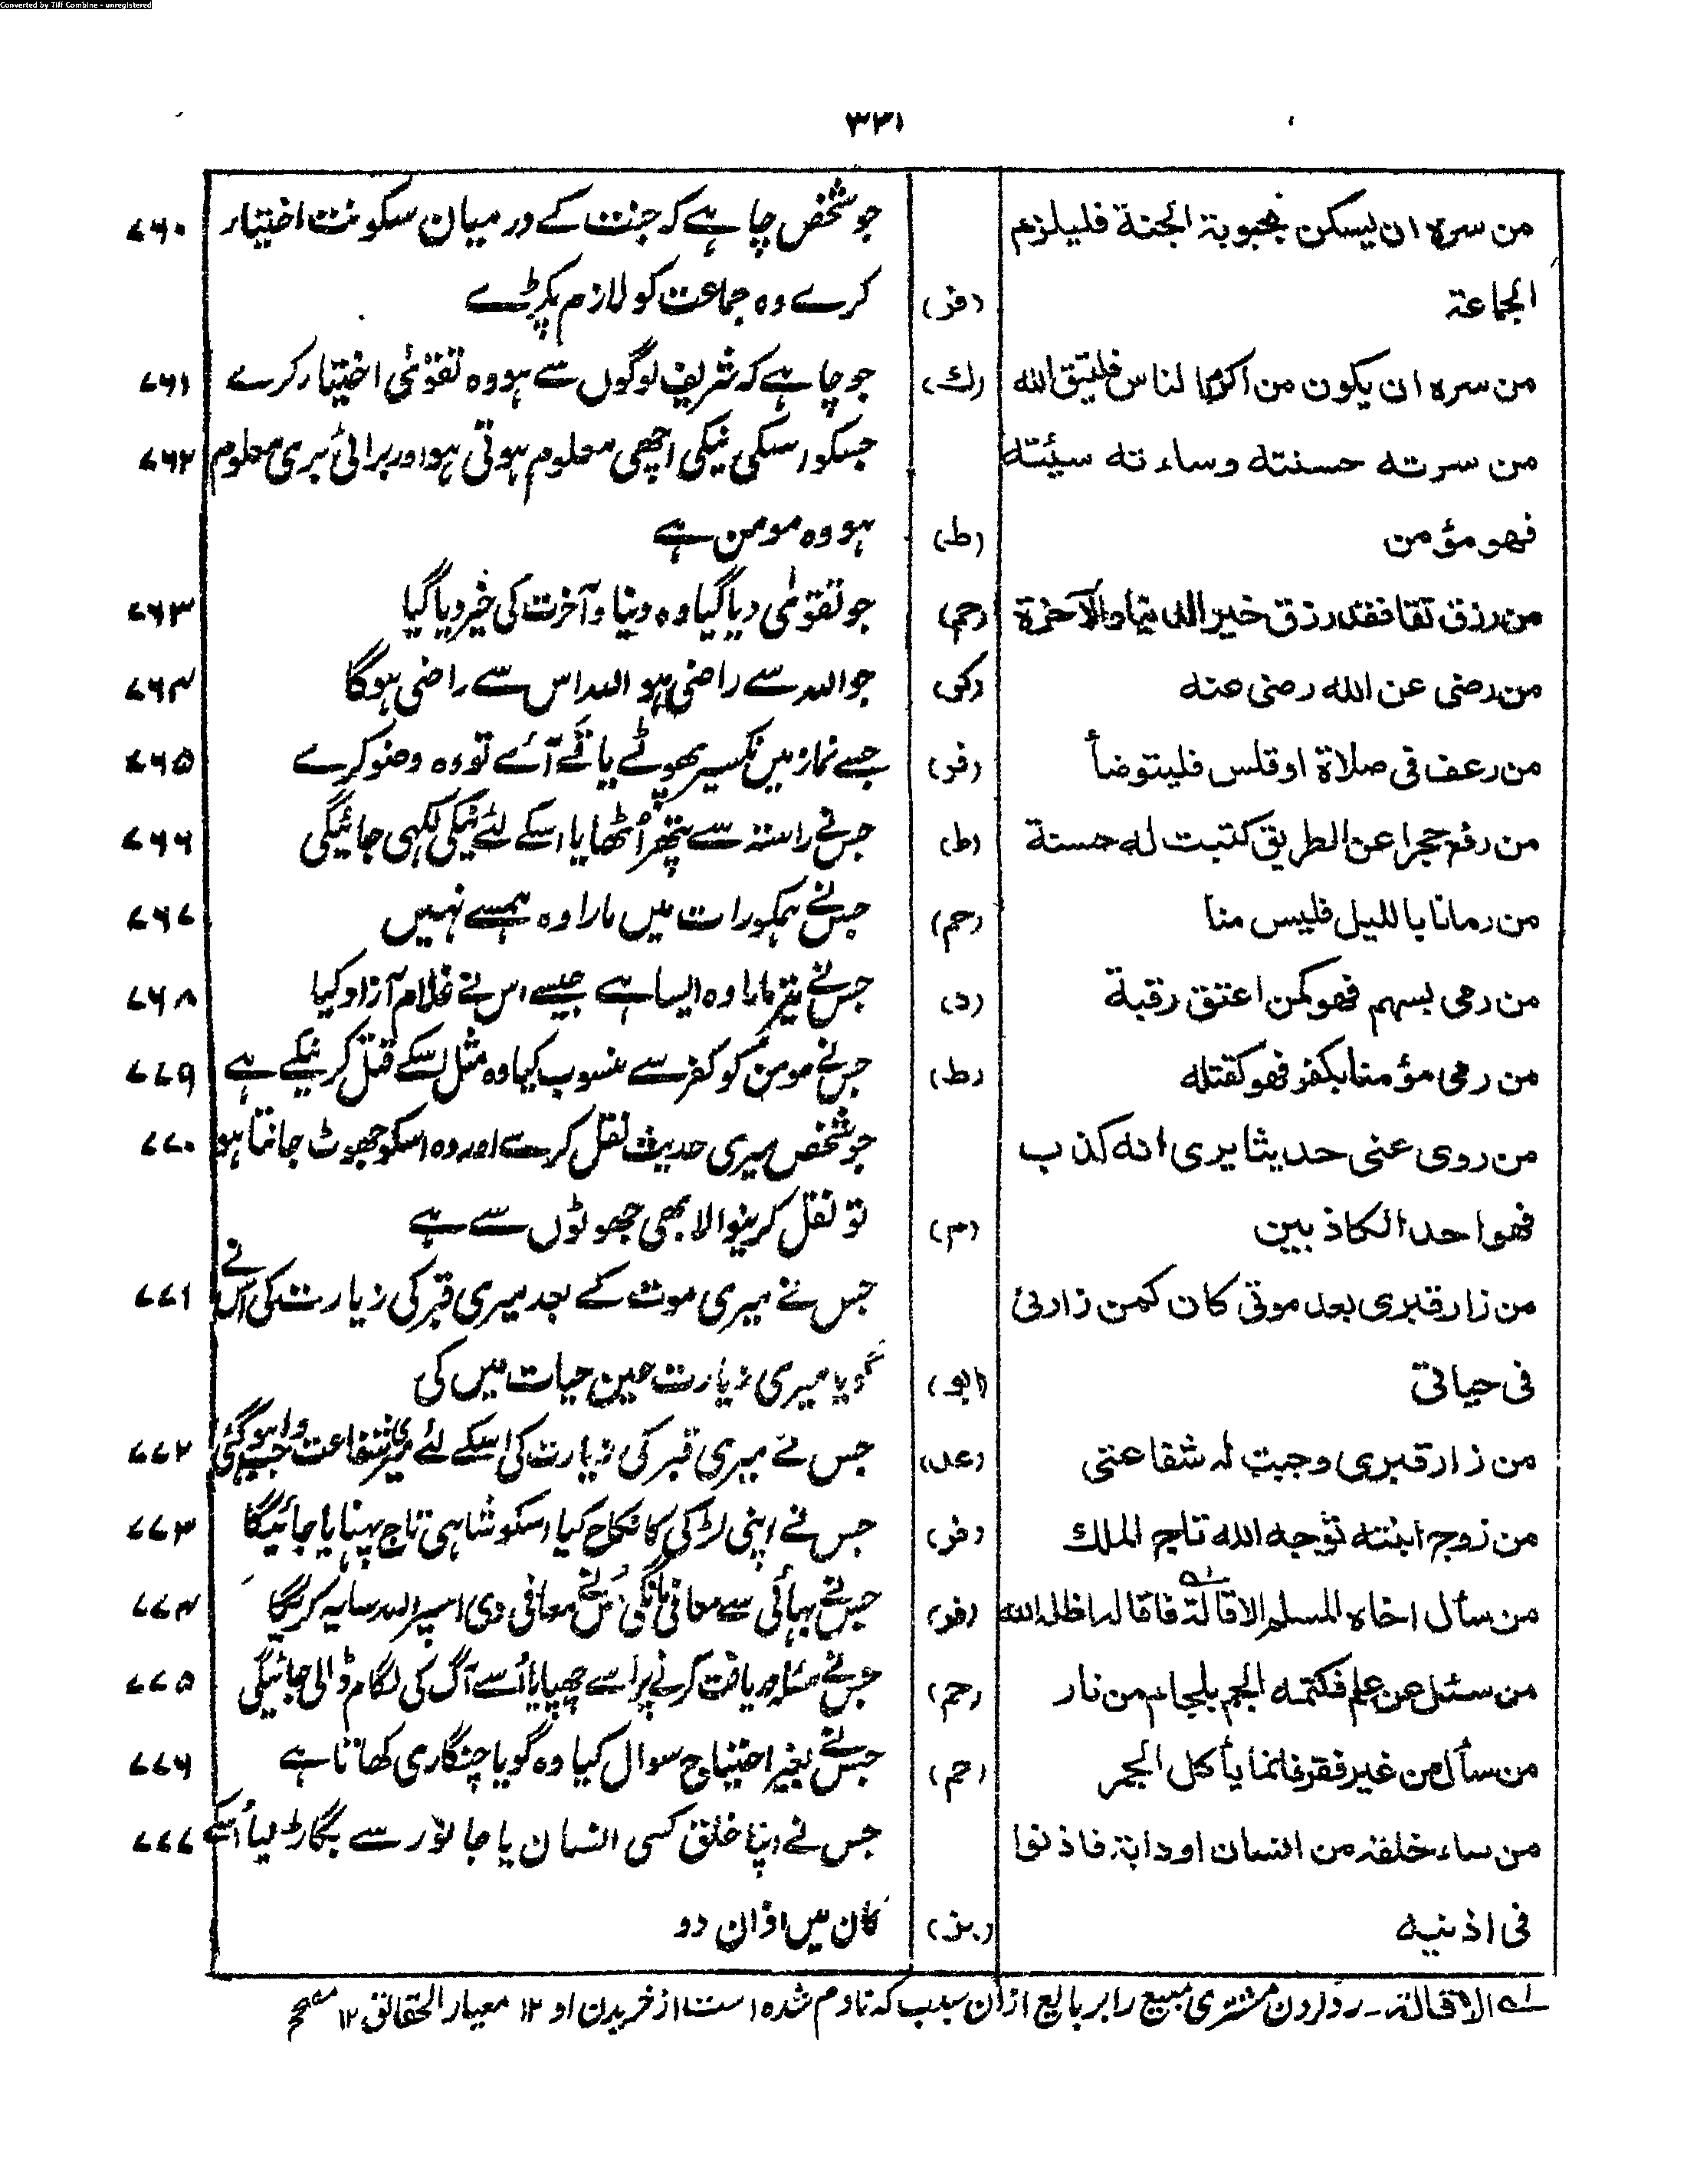 Converted by Tiff Combine - unregistered
۳۳۱
من سره ان يسكن بحبوبة الجنة فليلزم جو شخص چاہے کہ جنت کے درمیان سکونت اختیار ۷۶۰
الجماعة (فر) کرے وہ جماعت کو لازم پکڑے
من سره ان يكون من اكرم الناس فليتق الله (ك) جو چاہے کہ شریف لوگوں سے ہو وہ تقویٰ اختیار کرے ۷۶۱
من سرته حسنته وساءته سيئته جسکو اسکی نیکی اچھی معلوم ہوتی ہو اور برائی بری معلوم ۷۶۲
فهو مؤمن (ط) ہو وہ مومن ہے
من رزق تقا فقد رزق خير الدنيا والآخرة (حم) جو تقویٰ دیا گیا وہ دنیا و آخرت کی خیر دیا گیا ۷۶۳
من رضى عن الله رضى عنه (كر) جو اللہ سے راضی ہو اللہ اس سے راضی ہوگا ۷۶۴
من رعف فى صلاة او قلس فليتوضأ (فر) جسے نماز میں نکسیر پھوٹے یا قے آئے تو وہ وضو کرے ۷۶۵
من رفع حجرا عن الطريق كتبت له حسنة (ط) جس نے راستہ سے پتھر اُٹھایا اسکے لئے نیکی لکھی جائیگی ۷۶۶
من رمانا بالليل فليس منا (حم) جس نے ہمکو رات میں مارا وہ ہمسے نہیں ۷۶۷
من رمى بسهم فهو كمن اعتق رقبة (د) جس نے تیر مارا وہ ایسا ہے جیسے اس نے غلام آزاد کیا ۷۶۸
من رمى مؤمنا بكفر فهو كقتله (ط) جس نے مومن کو کفر سے منسوب کیا وہ مثل اسکے قتل کرنیکے ہے ۷۶۹
من روى عنى حديثا يرى انه كذب جو شخص میری حدیث نقل کرے اور وہ اسکو جھوٹ جانتا ہو ۷۷۰
فهو احد الكاذبين (م) تو نقل کرنیوالا بھی جھوٹوں سے ہے
من زار قبرى بعد موتى كان كمن زارنى جس نے میری موت کے بعد میری قبر کی زیارت کی اس نے ۷۷۱
فى حياتى (ابو) گویا میری زیارت حین حیات میں کی
من زار قبرى وجبت له شفاعتى (عد) جس نے میری قبر کی زیارت کی اسکے لئے میری شفاعت واجب ہو گئی ۷۷۲
من زوج ابنته توجه الله تاج الملك (فر) جس نے اپنی لڑکی کا نکاح کیا اسکو شاہی تاج پہنایا جائیگا ۷۷۳
من سأل اخاه المسلم الاقالة له فاقاله اظله الله (فر) جس نے بہائی سے معافی مانگی اُس نے معافی دی اسپر اللہ سایہ کریگا ۷۷۴
من سئل عن علم فكتمه الجم بلجام من نار (حم) جس نے مسئلہ دریافت کرنے پر اسے چھپایا اُسے آگ کی لگام ڈالی جائیگی ۷۷۵
من سأل من غير فقر فانما يأكل الجمر (حم) جس نے بغیر احتیاج سوال کیا وہ گویا چنگاری کھاتا ہے ۷۷۶
من ساء خلقه من انسان او دابة فاذنوا جس نے اپنا خلق کسی انسان یا جانور سے بگاڑ لیا اُسکے ۷۷۷
فى اذنيه کان میں اذان دو
له الاقالة ۔ رد کردن مشتری مبیع را بر بایع ازان سبب کہ نادم شدہ است از خریدن او ۱۲ معیار الحقائق ۱۲ مصحح